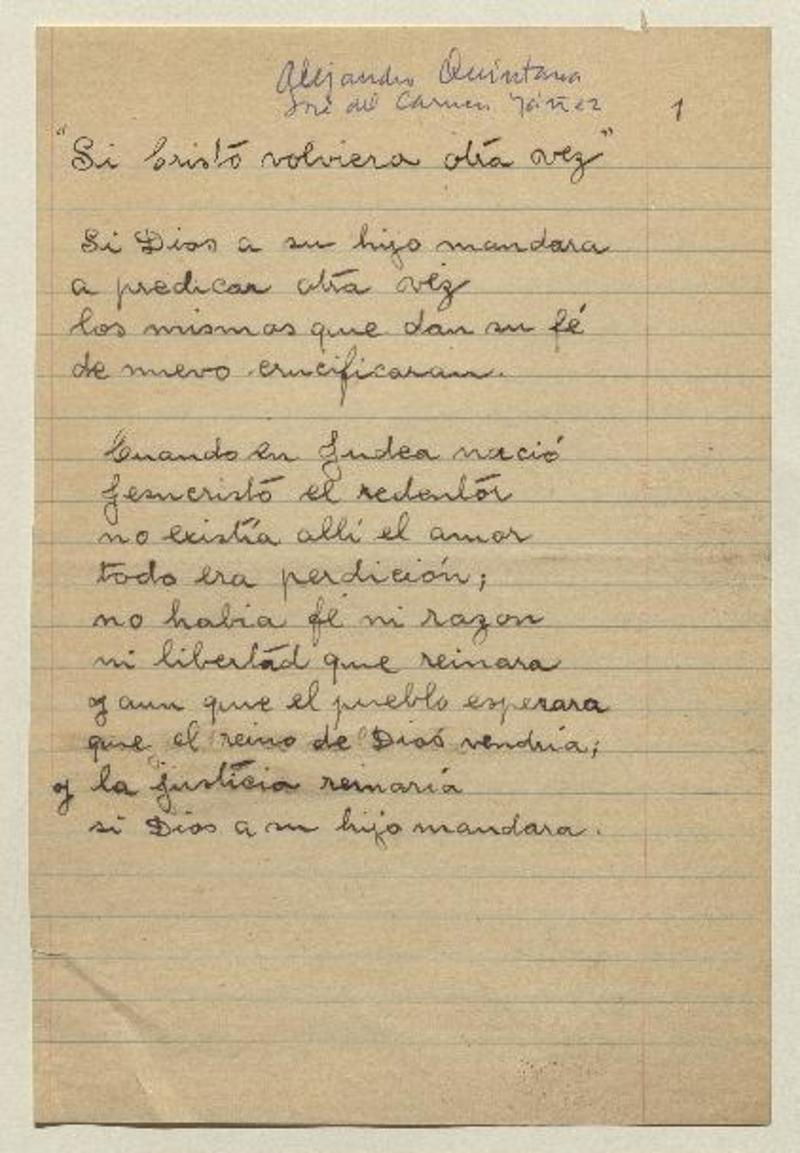 Alejandro Quintana
José del Carmen Yáñez
1
"Si Cristo volviera otra vez"
Si Dios a su hijo mandara
a predicar otra véz
los mismos que dan su fé
de nuevo crucificaran.
Cuando en Judea nació
Jesucristo el redentor
no existia alli el amor
todo era perdición;
no habia fé ni razon
ni libertad que reinara
y aun que el pueblo esperara
que el reino de Dios vendria;
y la justicia reinaria
si Dios a su hijo mandara.